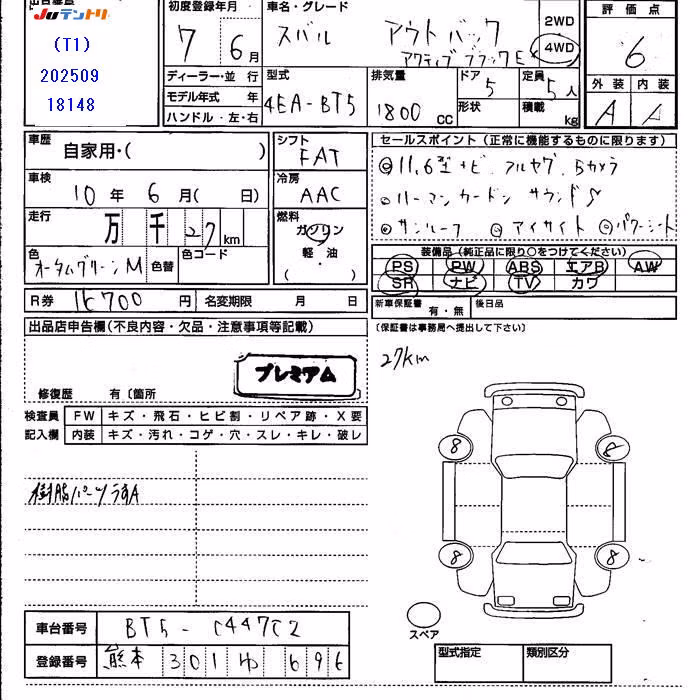 出品番号
JUテントリ
(T1)
202509
18148
初度登録年月
7年 6月
ディーラー・並行
モデル年式 年
ハンドル・左・右
車名・グレード
スバル アウトバック
アクティブブラックE
2WD
4WD
型式
4EA-BT5
排気量
1800cc
ドア
5
形状
定員
5人
積載
kg
評価点
6
外装 内装
A A
車歴
自家用・( )
車検
10年 6月( 日)
走行
万 千 27 km
色
オータムグリーンM
色替
色コード
シフト
FAT
冷房
AAC
燃料
ガソリン
軽・油
( )
R券
円
名変期限 月 日
セールスポイント(正常に機能するものに限ります)
◎11.6型ナビ フルセグ Bカメラ
◎ハーマンカードン サウンドS
◎サンルーフ ◎アイサイト ◎パワーシート
装備品(純正品に限り○をつけてください)
PS PW ABS エアB AW
SR ナビ TV カワ
新車保証書
有・無
後日品
(保証書は事務局へ提出して下さい)
出品店申告欄(不良内容・欠品・注意事項等記載)
プレミアム
修復歴 有〔箇所
27km
検査員 FW キズ・飛石・ヒビ割・リペア跡・X要
記入欄 内装 キズ・汚れ・コゲ・穴・スレ・キレ・破レ
樹脂パーツうすA
8 8
8 8
スペア
車台番号 BT5-C447C2
登録番号 熊本 301 ゆ 696
型式指定 類別区分